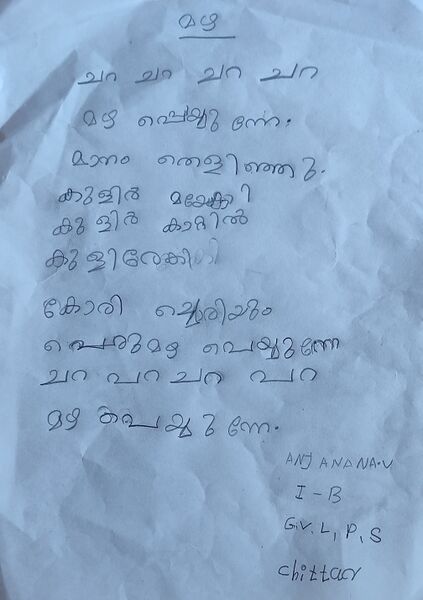 മഴ
ചറ ചറ ചറ ചറ
മഴ പെയ്യുന്നേ.
മാനം തെളിഞ്ഞു.
കുളിർ
കുളിർ കാറ്റിൽ
കോരി ചൊരിയും
പെരുമഴ പെയ്യുന്നേ
ചറ പറ ചറ പറ
മഴ പെയ്യുന്നേ.
ANJANANA.V
I - B
G.V.L.P.S
Chittar